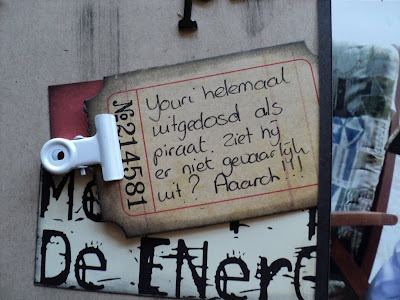 Youri helemaal
uitgedosd als
piraat. Ziet hij
er niet gevaarlijk
uit? Aaarch!!!
№214581
De ENERG